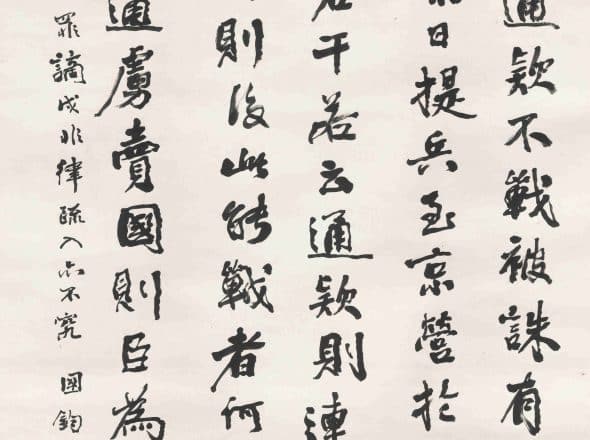 通欵不戰被誅有
日提兵至京營於
若干若云通欵則連
則後此能戰者何
通虜賣國則臣為
罪謫戍非律疏入亦不究 國鈞